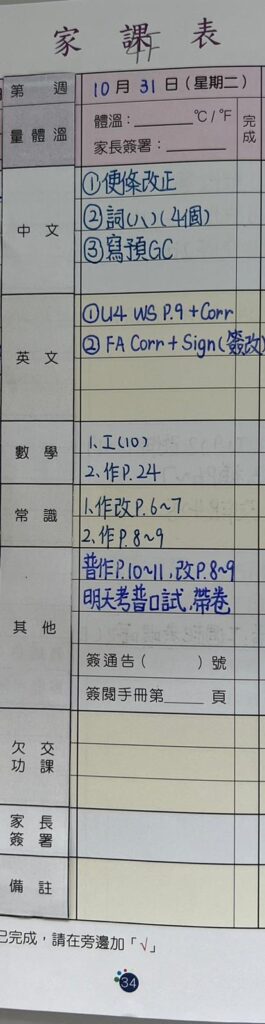 家課表
4F
第 週
10月31日(星期二)
量體溫
體溫：______°C/°F
家長簽署：______
完成
中文
①便條改正
②詞(八)(4個)
③寫預GC
英文
①U4 WS P.9 + Corr
② FA Corr + Sign (簽改)
數學
1.工(10)
2.作P.24
常識
1.作改P.6~7
2.作P.8~9
其他
普作P.10~11,改P.8~9
明天考普口試,帶卷
簽通告( )號
簽閱手冊第____頁
欠交功課
家長簽署
備註
已完成，請在旁邊加「√」
34